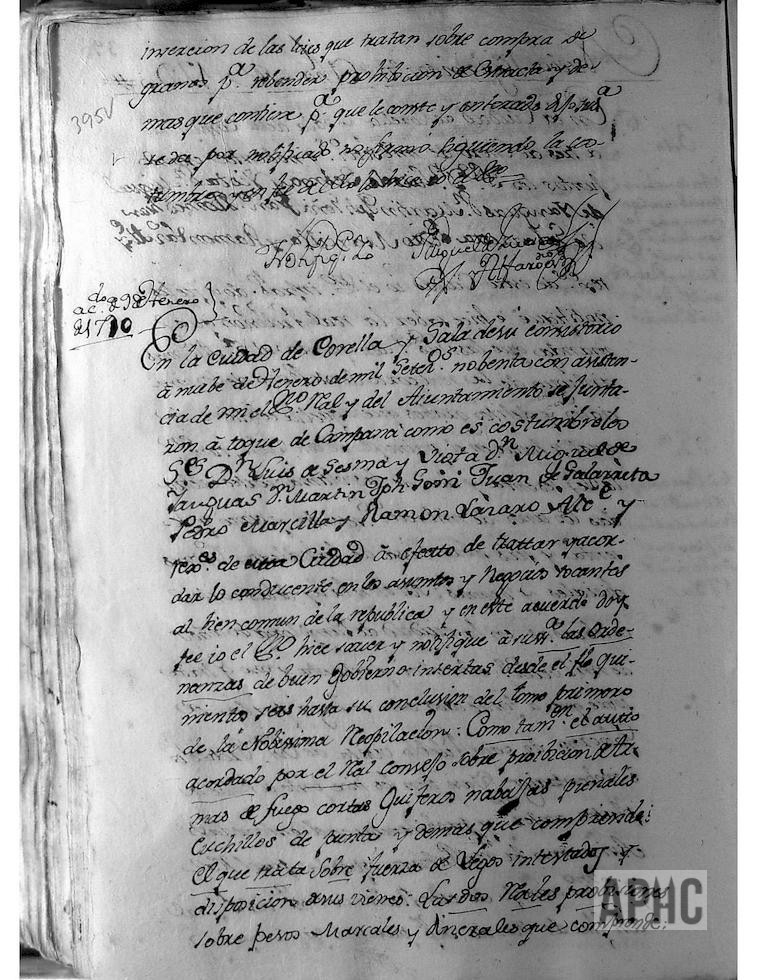 insercion de las leies que tratan sobre compra de
granos pª rebender prohibicion de Extracta y de
mas que contiene pª que le conste y enterado
se da por notificado no firmo siguiendo la cos-
tumbre y en fe de ello firme yo el Essno
395v
Notifiqelo
Miguel de
Alfaro
ac.do a 9 de Henero
de 1790
En la Ciudad de Corella y Sala de su consistorio
à nuebe de Henero de mil Setezs. nobenta con asisten-
cia de mi el Essno Ral y del Aiuntamiento se junta-
ron à toque de Campana como es costumbre los
Sres Dn Luis de Sesma y Dn Miguel de
Yanguas Dn Martin Jph Goñi Juan de Galarreta
Pedro Marcilla y Ramon Lazaro Alce y
rexres de esta Ciudad à efecto de trattar y acor-
dar lo conducente en los asuntos y Negocios tocantes
al bien comun de la republica y en este acuerdo doy
fee io el Essno hice sauer y notifique à sus ss. las Orde-
nanzas de buen Gobierno insertas desde el flo qui-
nientos seis hasta su conclusion del tomo primero
de la Nobissima Recopilacion: Como tamen el auto
acordado por el Ral consejo sobre proibicion de Ar-
mas de fuego cortas Guiferos nabajas
Cuchillos de punta y demas que comprende:
El que trata Sobre fuerza de Legos intestados y
disposicion de sus vienes: Las dos Rales probisiones
sobre pesos Marcales y dinerales que comprende:
APHC